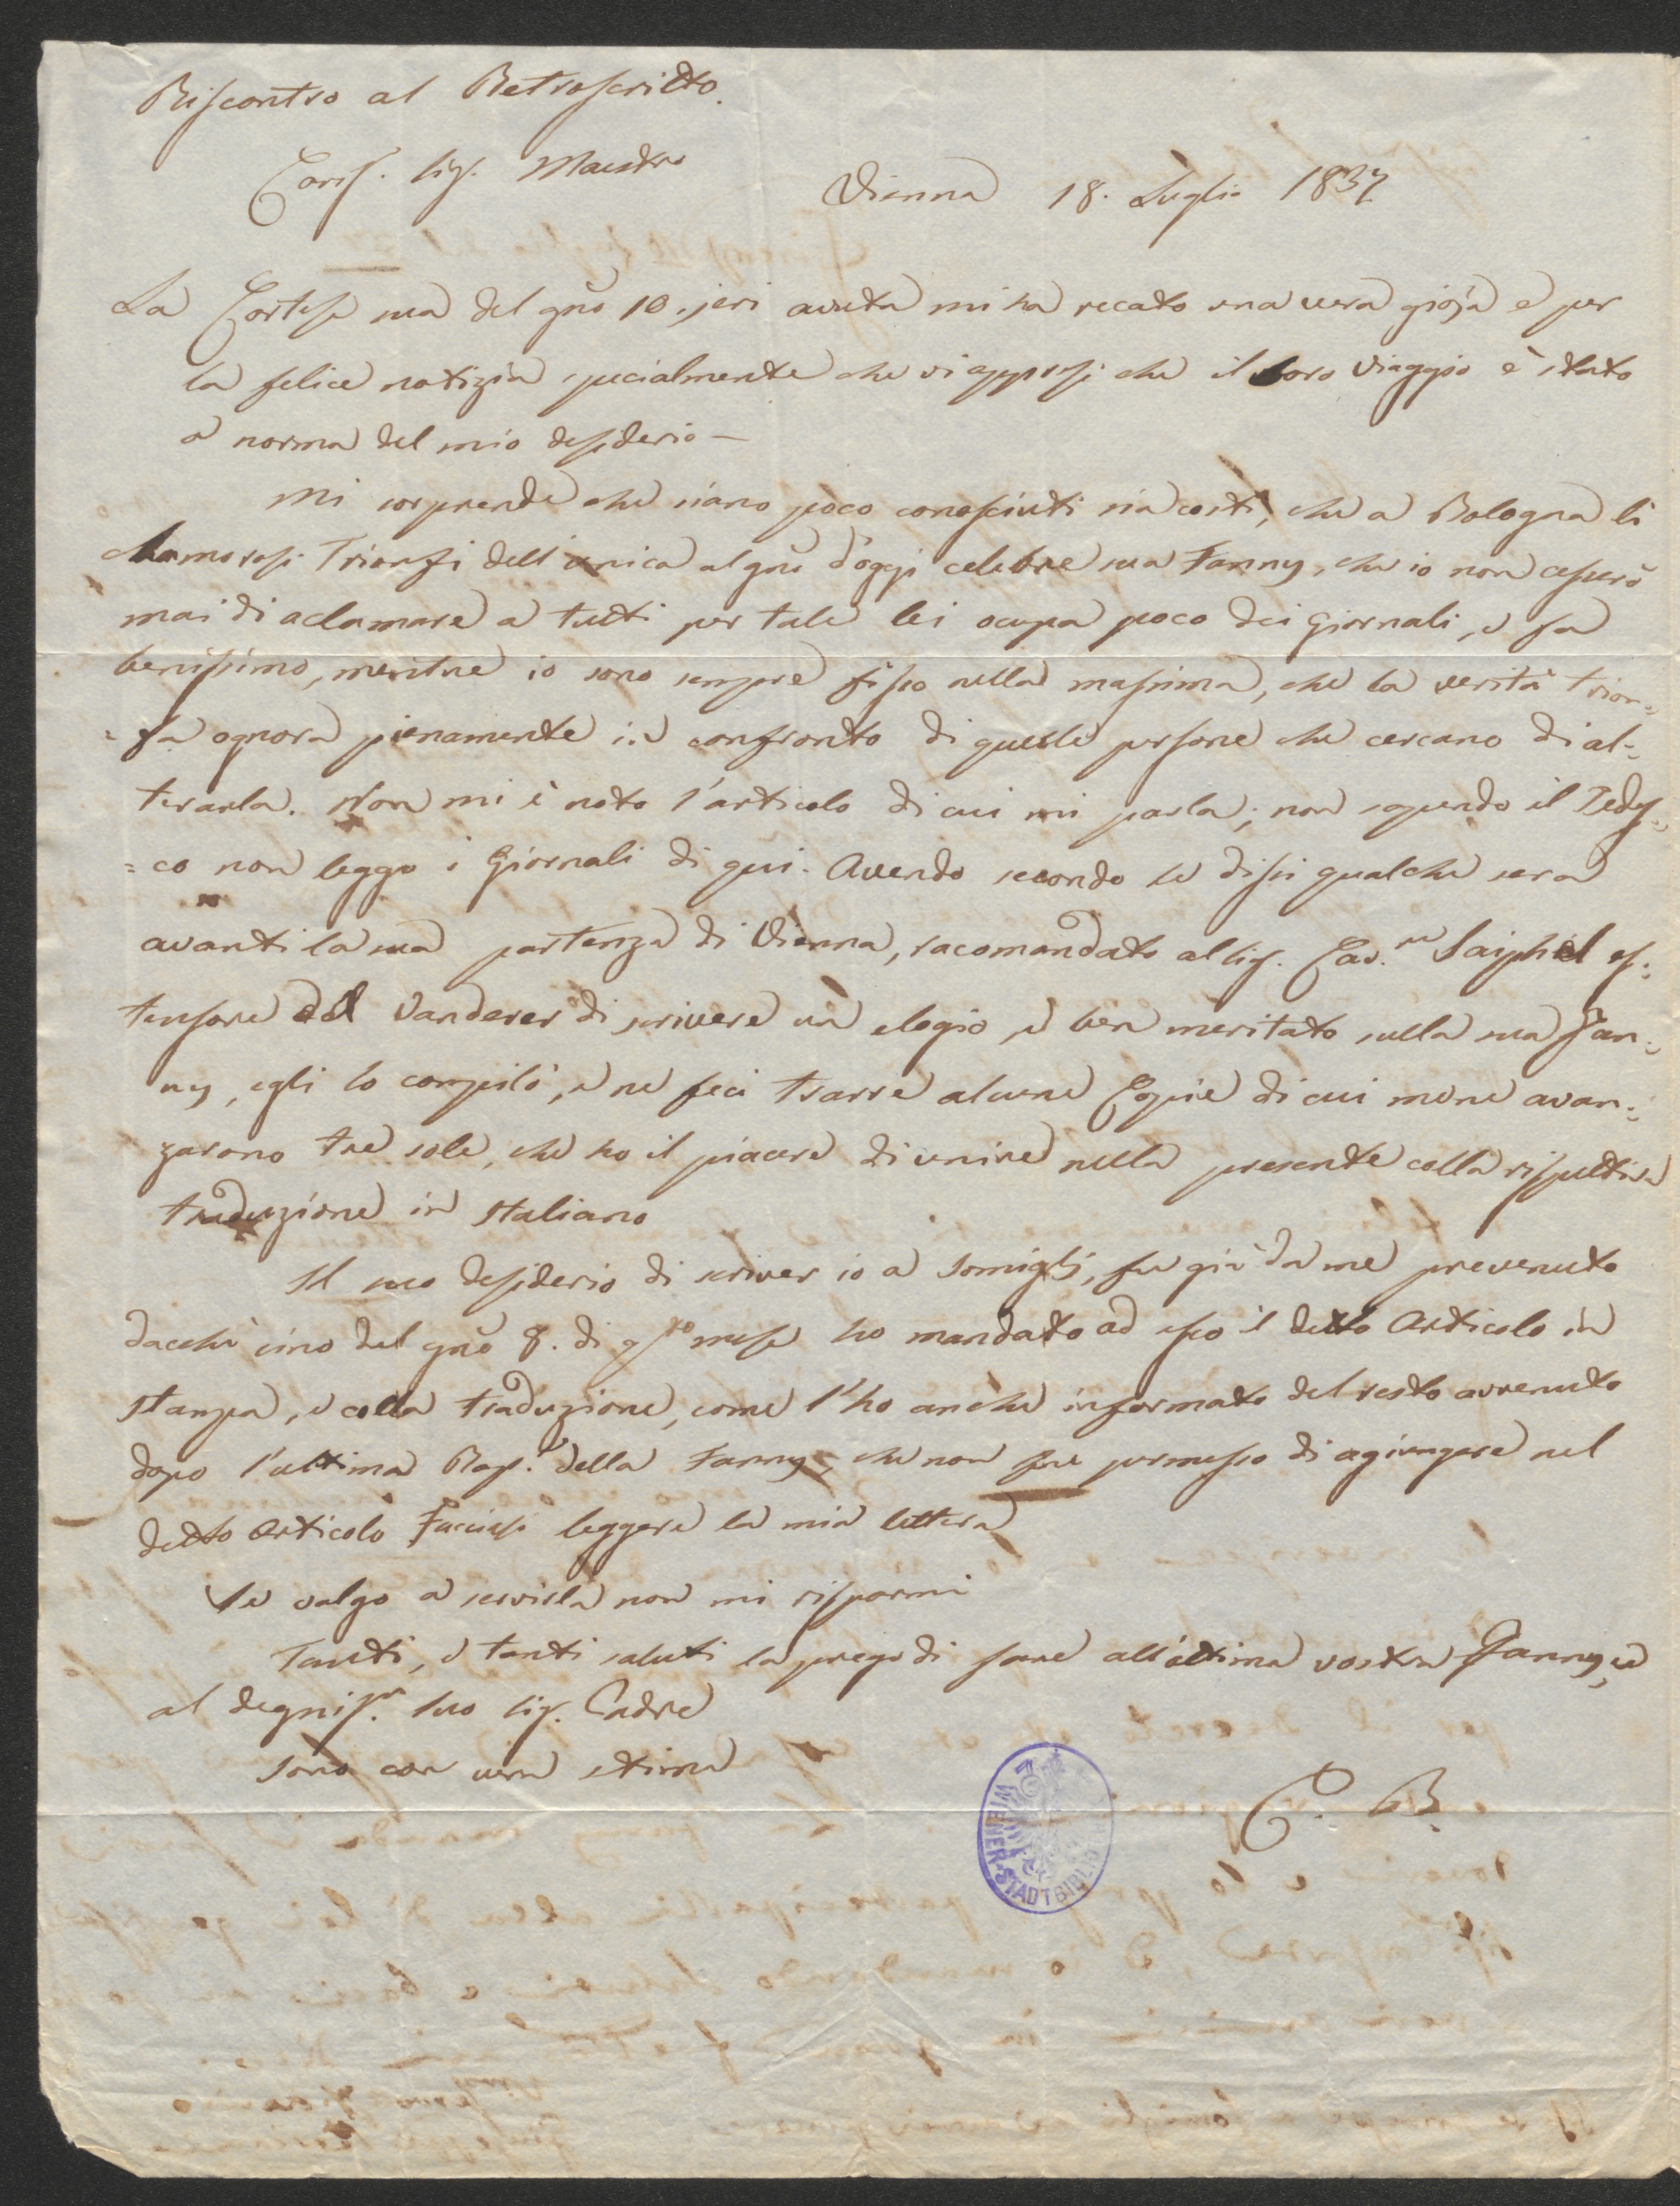 Riscontro al Retroscritto.
Cariss. Sig. Maestro
Vienna 18. Luglio 1837
La Cortese sua del gno 10. jeri avuta mi ha recato una vera gioja e per
la felice notizia specialmente che vi appresi che il loro Viaggio è stato
a norma del mio desiderio —
Mi sorprende che siano poco conosciuti sia costì, che a Bologna li
clamorosi Trionfi dell'unica al gno d'oggi celebre sua Fanny, che io non cesserò
mai di aclamare a tutti per tale lei ocupa poco dei Giornali, e fa
benissimo, mentre io sono sempre fisso nella massima, che la verità trion=
=fa ognora pienamente in confronto di quelle persone che cercano di al=
terarla. Non mi è noto l'articolo di cui mi parla; non sapendo il Tedes=
=co non leggo i Giornali di qui. Avendo secondo le dissi qualche sera
avanti la sua partenza di Vienna, racomandato al Sig. Cav.re Saiphid es=
tensore del Vanderer di scrivere un elogio, e ben meritato sulla sua Fan=
ny, egli lo compilò, e ne feci trarre alcune Copie di cui me ne avan=
zarono tre sole, che ho il piacere di unire nella presente colla rispettiva
traduzione in Italiano
Il suo desiderio di scriver io a Somigli, fu già da me prevenuto
dacchè sino del gno 8. di q.sto mese ho mandato ad esso il detto Articolo in
stampa, e colla traduzione, come l'ho anche informato del resto avvenuto
dopo l'ultima Rap. della Fanny, che non fu permesso di agiungere nel
detto Articolo Facciasi leggere la mia lettera
Se valgo a servirla non mi risparmi
Tanti, e tanti saluti la prego di fare all'ottima vostra Fanny, e
al degniss. suo Sig. Padre
Sono con vera stima
C. B.
WIENER-STADTBIBLIOTHEK